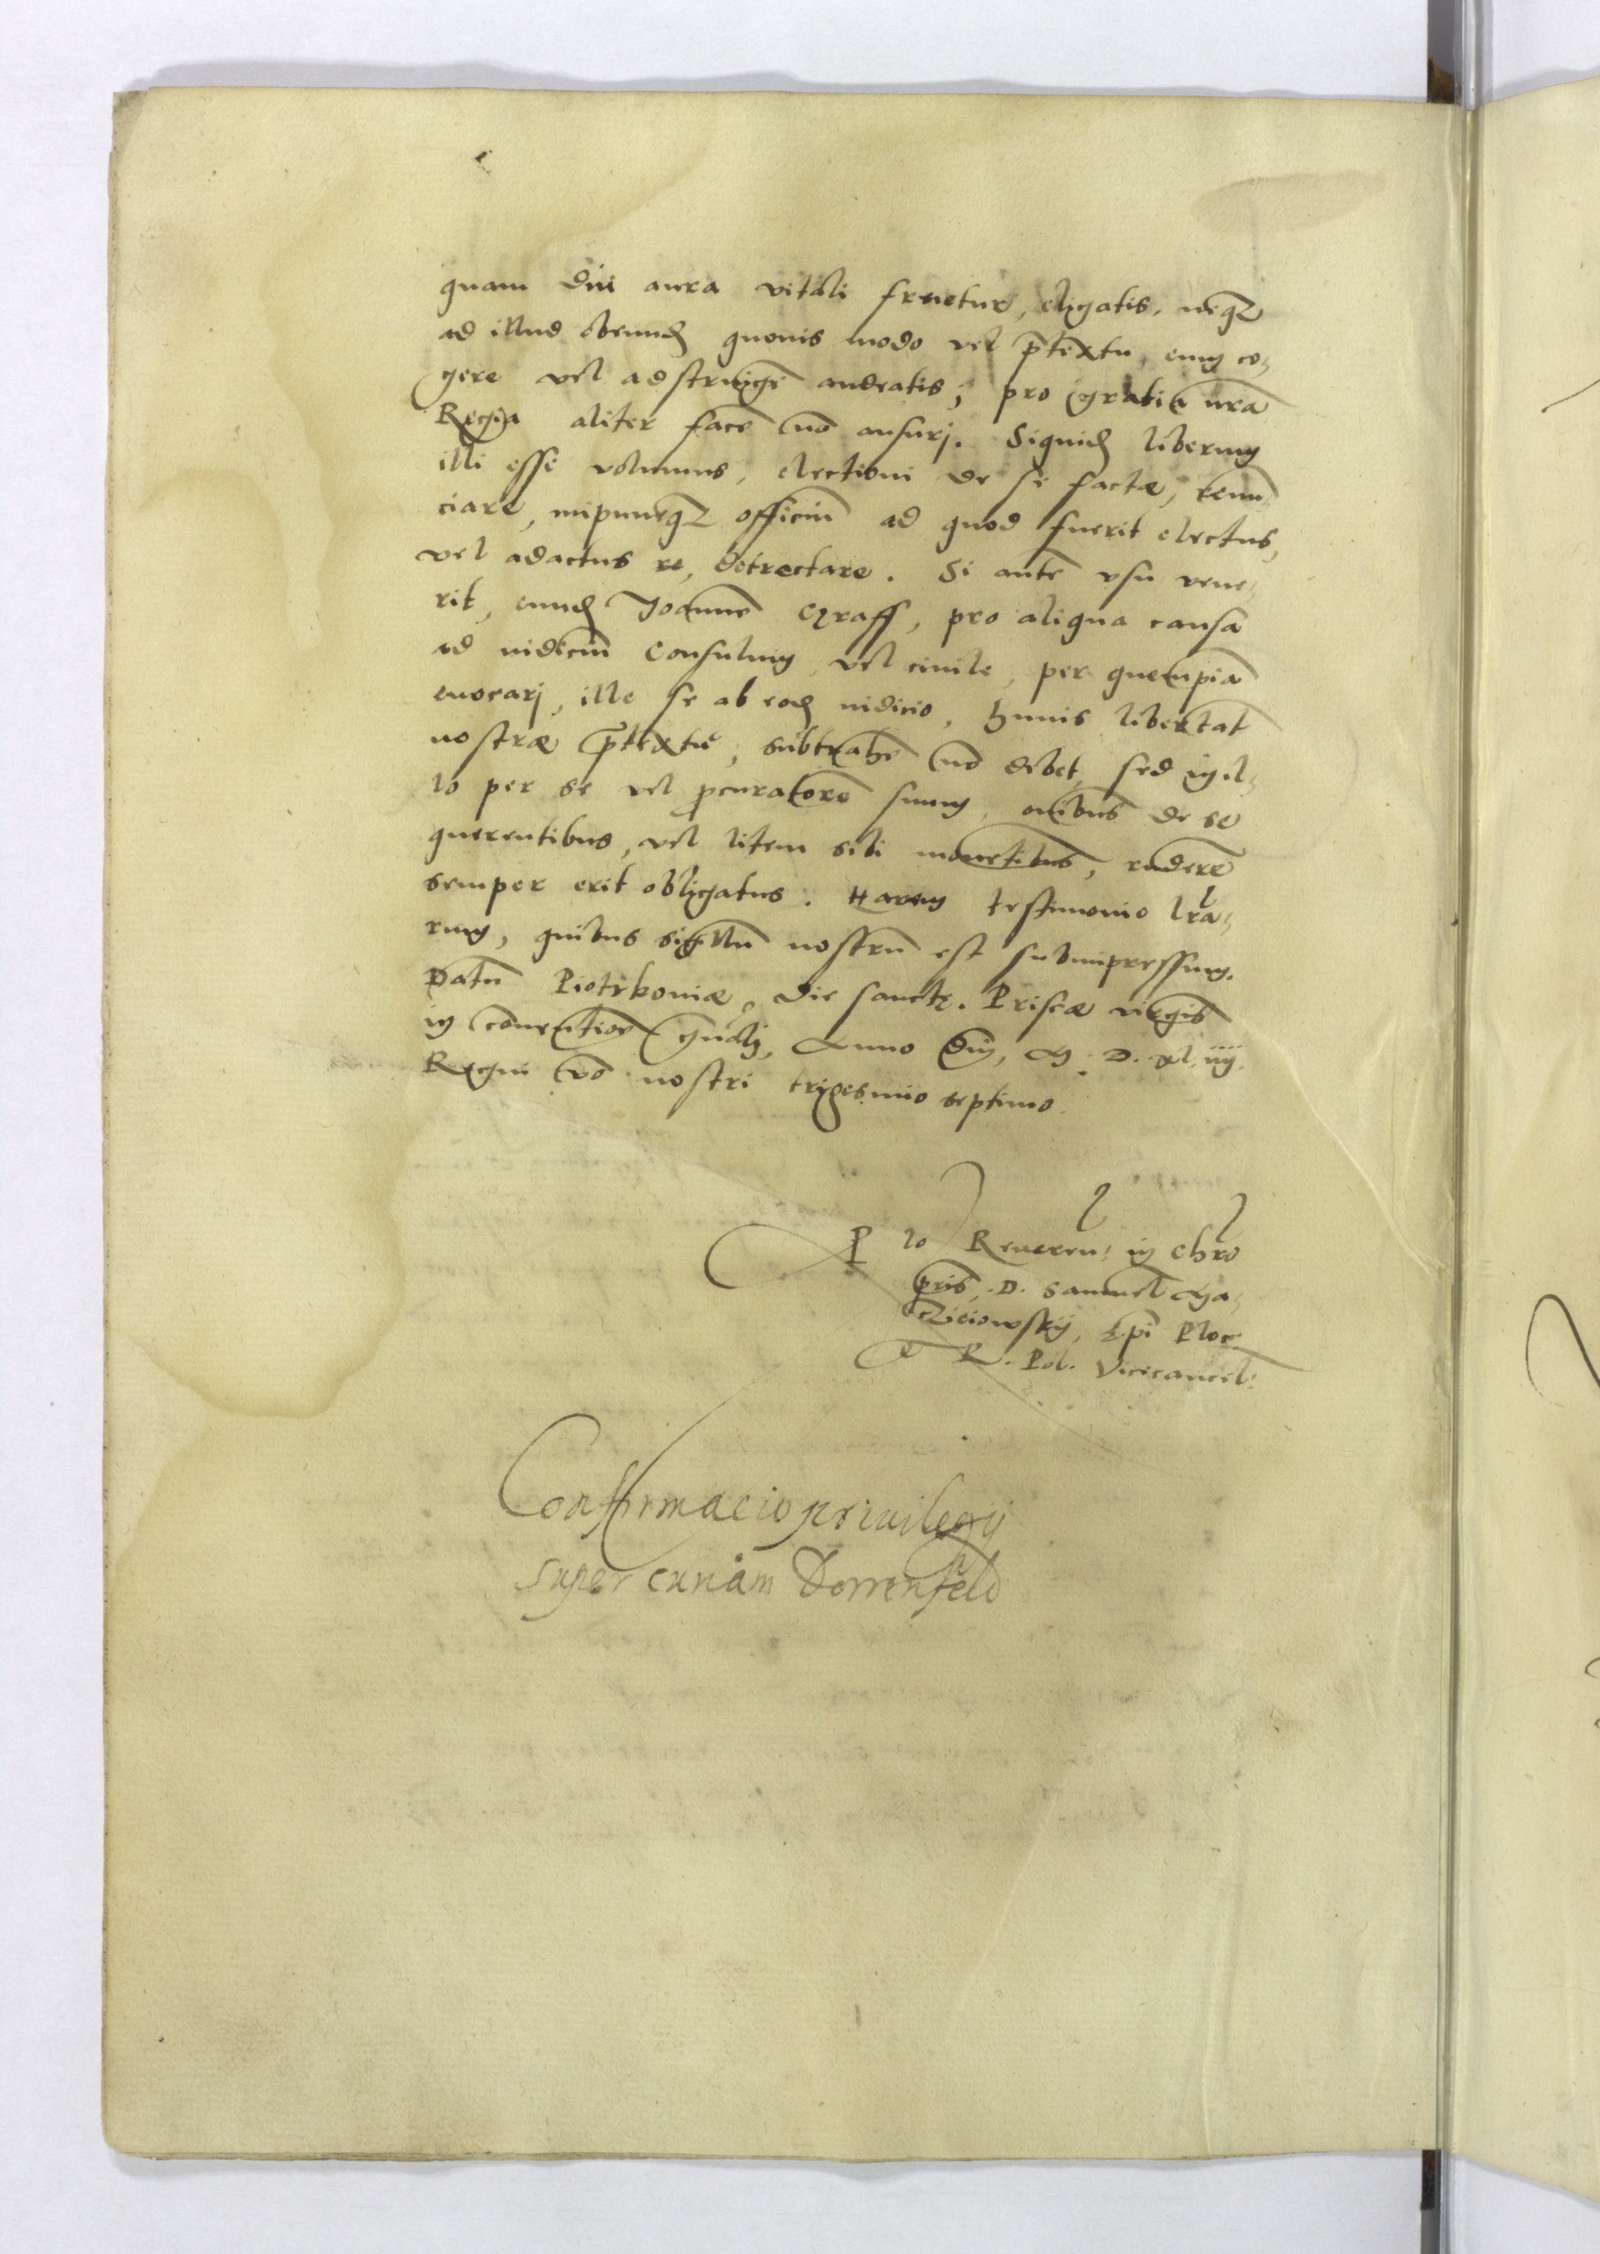 quam diu aura vitali fruetur, eligatis, neqz
ad illud obeund quouis modo vel ptextu, eum co-
gere vel adstringe audeatis; pro gratia nra
Regia aliter face no ausuri. Siquid liberum
illi esse volumus, electioni de se factæ, renun-
ciare, impuneqz officiu ad quod fuerit electus,
vel adactus re, detrectare. Si aute vsu vene-
rit, eund Joanne Graff, pro aliqua causa
ad iudiciu Consulum, vel ciuile, per quempia
euocari, ille se ab eod iudicio, huius libertat
nostræ ptextu, subtrahe no debet, sed in il-
lo per se vel pcuratore suum, oibus de se
querentibus, vel litem sibi mouetibus, rndere
semper erit obligatus. Harum testimonio lra-
rum, quibus sigillu nostru est subimpressum.
Datu Piotrkouiæ, die sancte Priscæ virgis
in conuentioe gnali, Anno dni, M. D. xl. iiij.
Regni vo nostri trigesimo septimo.
P lo Reueren: in Chro
pris, D. Samuel Ma-
cieiowsky, Epi Ploc.
et R. Pol. Vicecancel:
Confirmacio priuilegij
super curiam Dorrenfeld